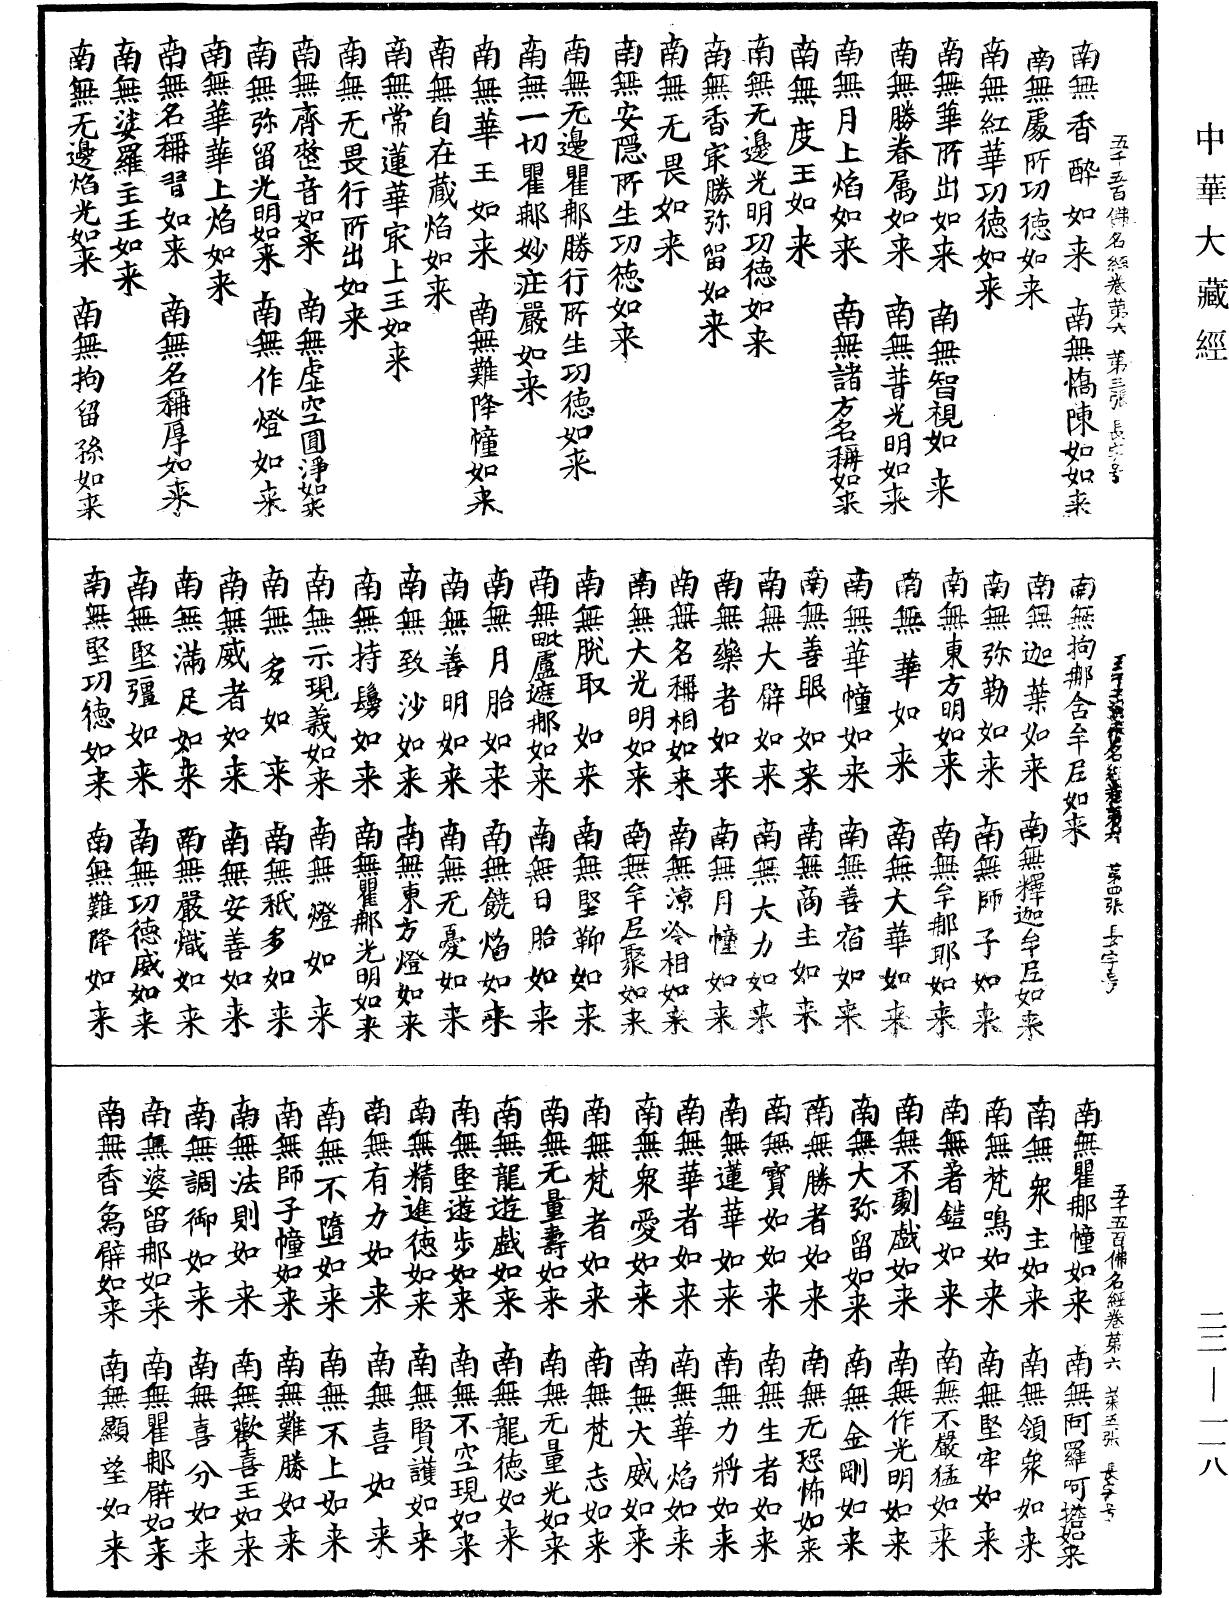 中華大藏經
五千五百佛名經卷第六 第三張 長字号
南無香醉如来 南無憍陳如如来
南無處所功德如来
南無紅華功德如来
南無華所出如来 南無智視如来
南無勝眷属如来 南無普光明如来
南無月上焰如来 南無諸方名稱如来
南無度王如来
南無无邊光明功德如来
南無香最勝弥留如来
南無无畏如来
南無安隱所生功德如来
南無无邊瞿那勝行所生功德如来
南無一切瞿那妙莊嚴如来
南無華王如来 南無難降幢如来
南無自在蔵焰如来
南無常蓮華最上王如来
南無无畏行所出如来
南無齊整音如来 南無虛空圓淨如来
南無弥留光明如来 南無作燈如来
南無華華上焰如来
南無名稱習如来 南無名稱厚如来
南無娑羅主王如来
南無无邊焰光如来 南無拘留孫如来
第四張 長字号
南無拘那含牟尼如来
南無迦葉如来 南無釋迦牟尼如来
南無弥勒如来 南無師子如来
南無東方明如来 南無牟那耶如来
南無華如来 南無大華如来
南無華幢如来 南無善宿如来
南無善眼如来 南無商主如来
南無大臂如来 南無大力如来
南無藥者如来 南無月幢如来
南無名稱相如来 南無涼冷相如来
南無大光明如来 南無牟尼聚如来
南無脫取如来 南無堅鞕如来
南無毗盧遮那如来 南無日胎如来
南無月胎如来 南無饒焰如来
南無善明如来 南無无憂如来
南無致沙如来 南無東方燈如来
南無持鬘如来 南無瞿那光明如来
南無示現義如来 南無燈如来
南無多如来 南無秖多如来
南無威者如来 南無安善如来
南無滿足如来 南無嚴熾如来
南無堅彊如来 南無功德威如来
南無堅功德如来 南無難降如来
五千五百佛名經卷第六 第五张 長字号
南無瞿那幢如来 南無阿羅呵搭如来
南無衆主如来 南無領衆如来
南無梵鳴如来 南無堅牢如来
南無著鎧如来 南無不嚴猛如来
南無不劇戲如来 南無作光明如来
南無大弥留如来 南無金剛如来
南無勝者如来 南無无恐怖如来
南無寶如如来 南無生者如来
南無蓮華如来 南無力將如来
南無華者如来 南無華焰如来
南無衆愛如来 南無大威如来
南無梵者如来 南無梵志如来
南無无量壽如来 南無无量光如来
南無龍遊戲如来 南無龍德如来
南無堅遊步如来 南無不空現如来
南無精進德如来 南無賢護如来
南無有力如来 南無喜如来
南無不墮如来 南無不上如来
南無師子幢如来 南無難勝如来
南無法則如来 南無歡喜王如来
南無調御如来 南無喜分如来
南無婆留那如来 南無瞿那臂如来
南無香象臂如来 南無顯望如来
二二—一一八